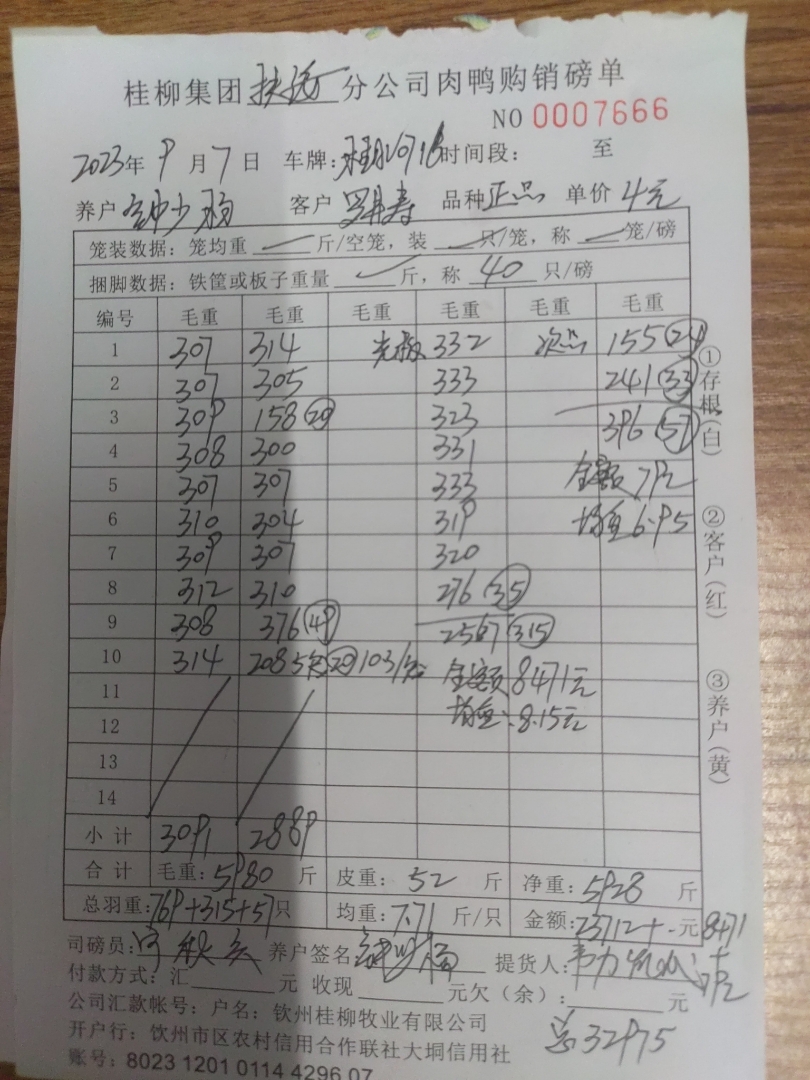 桂柳集团 分公司肉鸭购销磅单
NO 0007666
2023年 9月7日 车牌: 时间段: 至
养户 钟少 客户 罗 寿 品种 正品 单价 4元
笼装数据:笼均重 斤/空笼,装 只/笼,称 笼/磅
捆脚数据:铁筐或板子重量 斤,称 40 只/磅
编号 毛重 毛重 毛重 毛重 毛重 毛重
1 307 314 332 次品 155 24
2 307 305 333 241 33
3 309 158 20 323 396 57
4 308 300 331
5 307 307 333 金额 792
6 310 304 319 均重 6.95
7 309 307 320
8 312 310 276 35
9 308 376 49 2567 315
10 314 208 20 103 金额 8471元
11 均重: 8.15元
12
13
14
小计 3091 2889
合计 毛重: 5980 斤 皮重: 52 斤 净重: 5928 斤
总羽重: 769+315+57只 均重: 7.71 斤/只 金额: 23712+ 元 8471
+
792
司磅员: 养户签名 提货人:
付款方式:汇 元 收现 元欠(余): 元
公司汇款帐号:户名:钦州桂柳牧业有限公司
总32975
开户行:钦州市区农村信用合作联社大垌信用社
账号:8023 1201 0114 4296 07
①存根(白)
②客户(红)
③养户(黄)